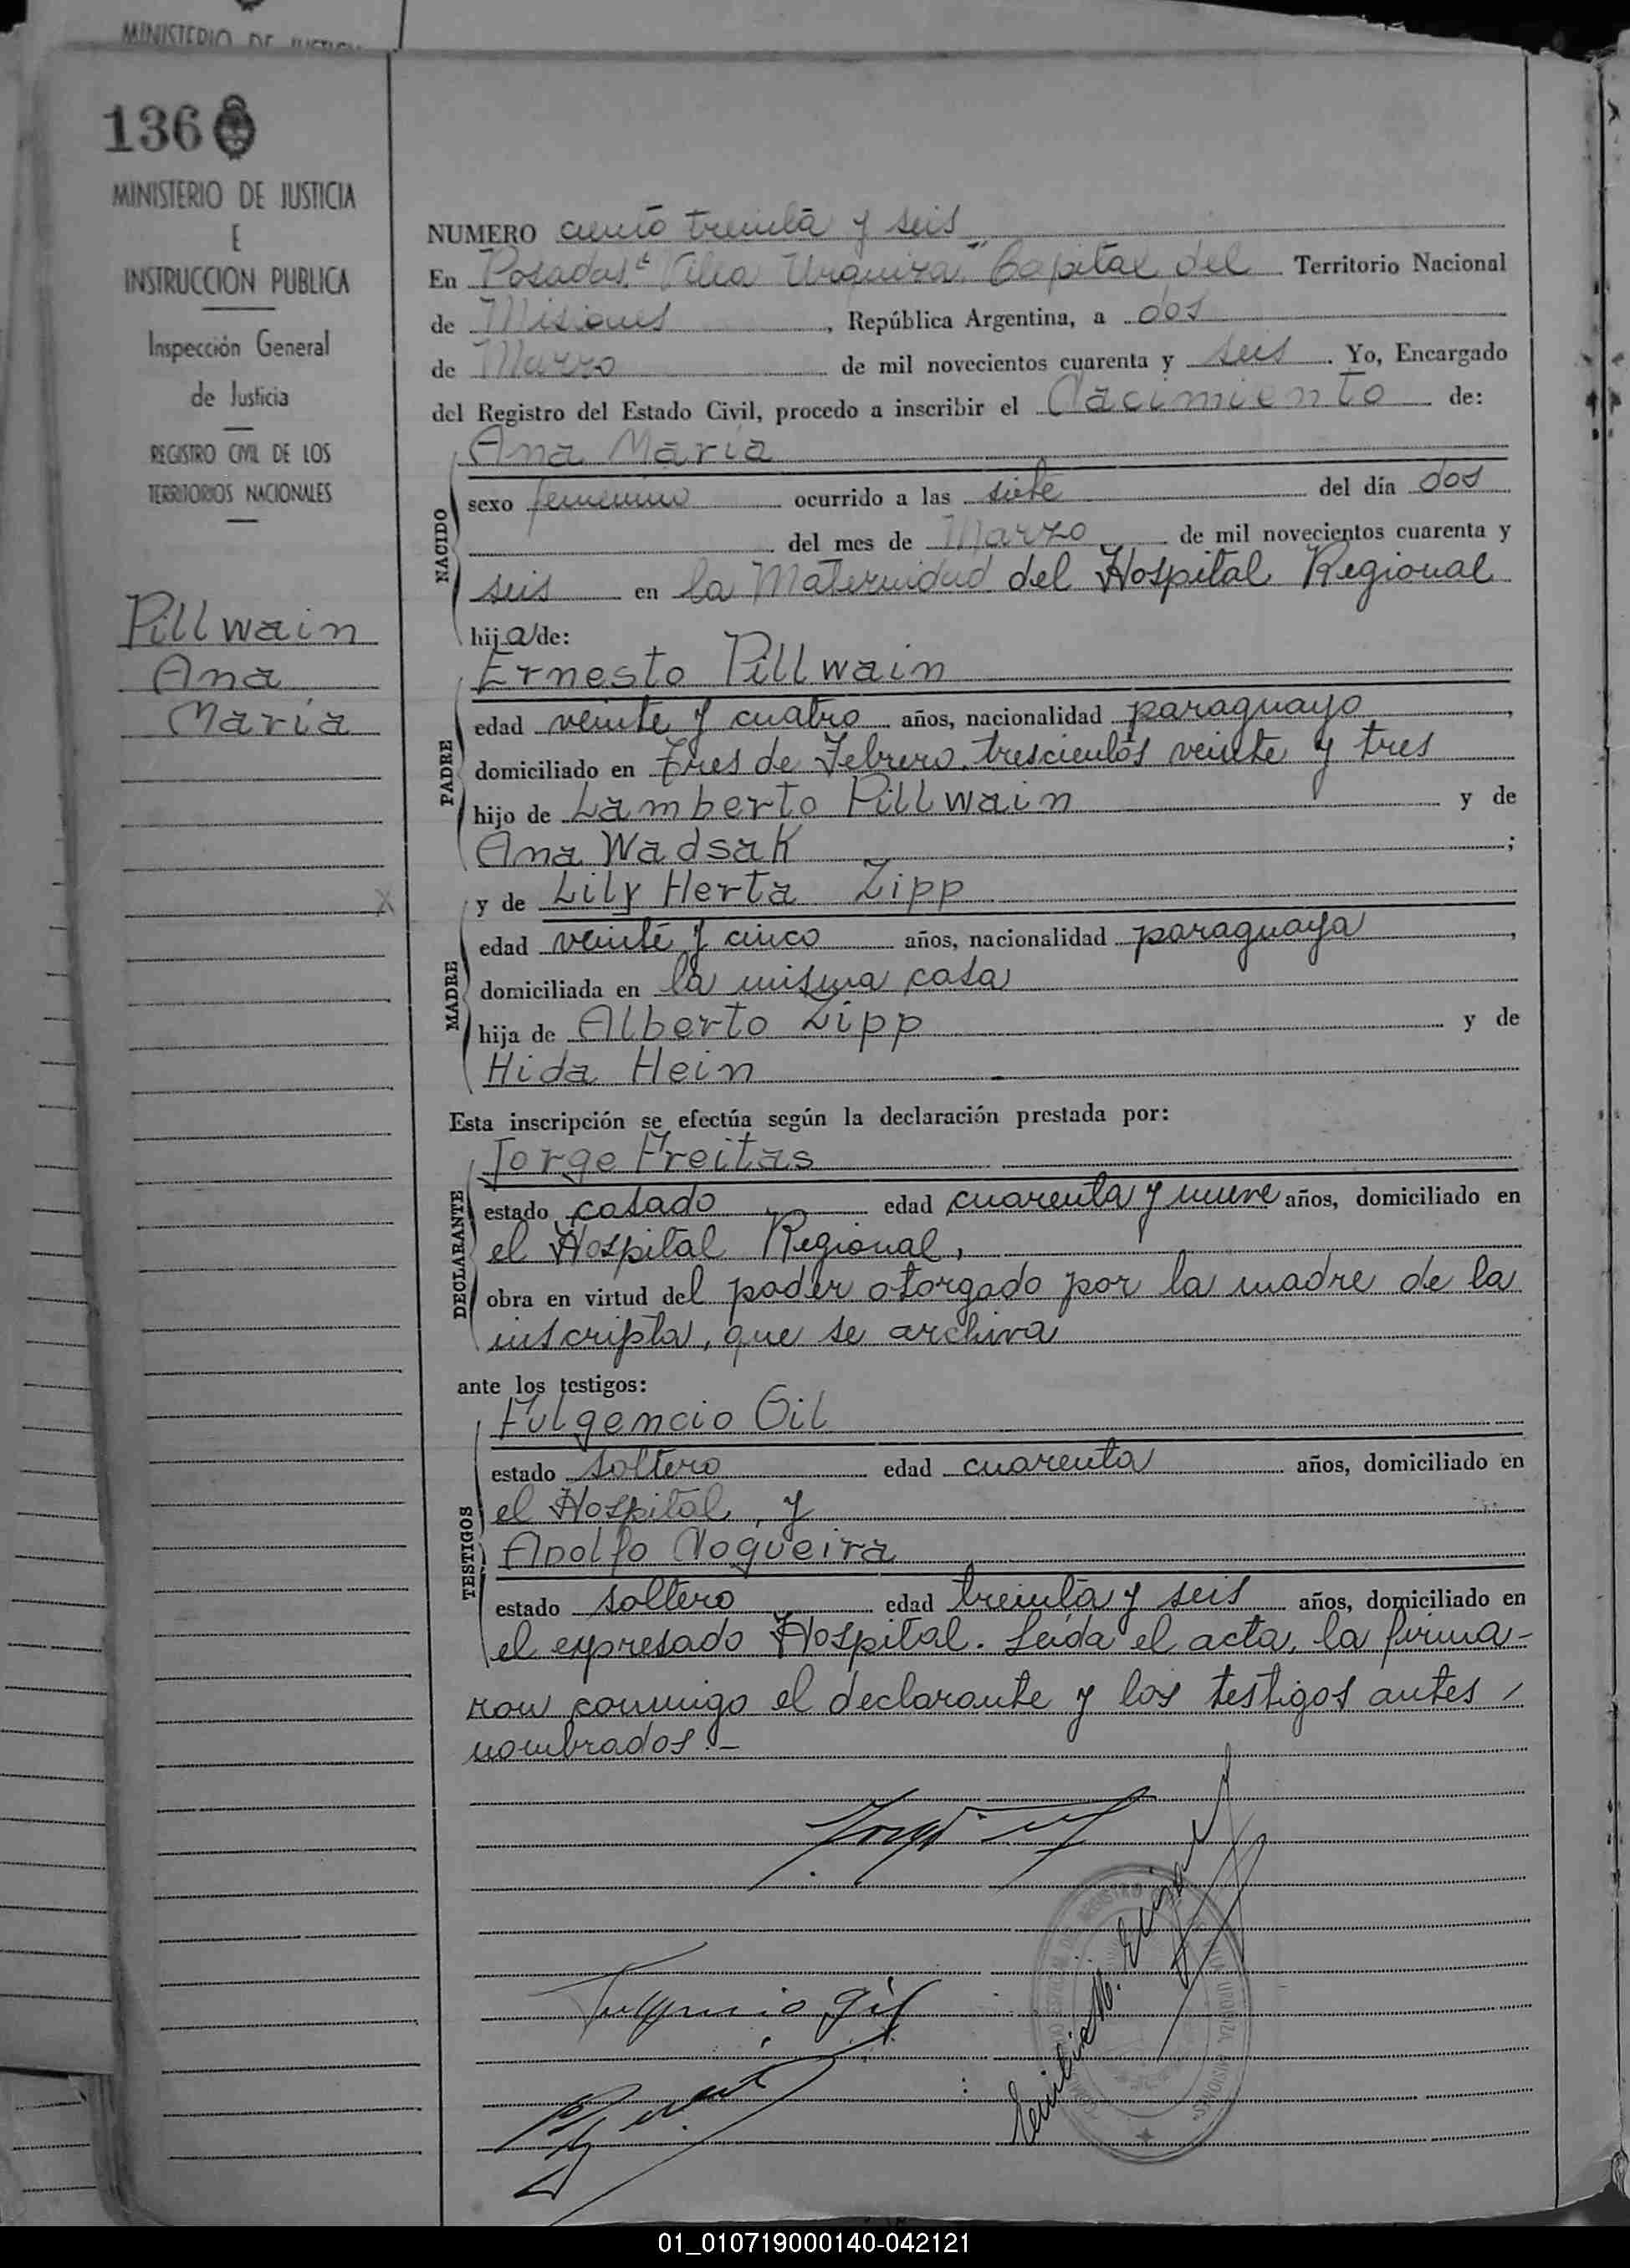 MINISTERIO DE JUSTICIA
136
MINISTERIO DE JUSTICIA
E
INSTRUCCION PUBLICA
Inspección General
de Justicia
REGISTRO CIVIL DE LOS
TERRITORIOS NACIONALES
Pillwain
Ana
María
NUMERO ciento treinta y seis
En Posadas "Villa Urquiza" Capital del Territorio Nacional
de Misiones, República Argentina, a dos
de Marzo de mil novecientos cuarenta y seis. Yo, Encargado
del Registro del Estado Civil, procedo a inscribir el Nacimiento de:
NACIDO
Ana María
sexo femenino ocurrido a las siete del día dos
del mes de Marzo de mil novecientos cuarenta y
seis en la Maternidad del Hospital Regional
hija de:
PADRE
Ernesto Pillwain
edad veinte y cuatro años, nacionalidad paraguayo,
domiciliado en Tres de Febrero, trescientos veinte y tres
hijo de Lamberto Pillwain y de
Ana Wadsak;
MADRE
y de Lily Herta Zipp
edad veinte y cinco años, nacionalidad paraguaya,
domiciliada en la misma casa
hija de Alberto Zipp y de
Hida Hein
Esta inscripción se efectúa según la declaración prestada por:
DECLARANTE
Jorge Freitas
estado casado edad cuarenta y nueve años, domiciliado en
el Hospital Regional,
obra en virtud del poder otorgado por la madre de la
inscripta, que se archiva
ante los testigos:
TESTIGOS
Fulgencio Gil
estado soltero edad cuarenta años, domiciliado en
el Hospital, y
Adolfo Nogueira
estado soltero edad treinta y seis años, domiciliado en
el expresado Hospital. Leída el acta, la firma-
ron conmigo el declarante y los testigos antes
nombrados.-
Fulgencio Gil
01_010719000140-042121